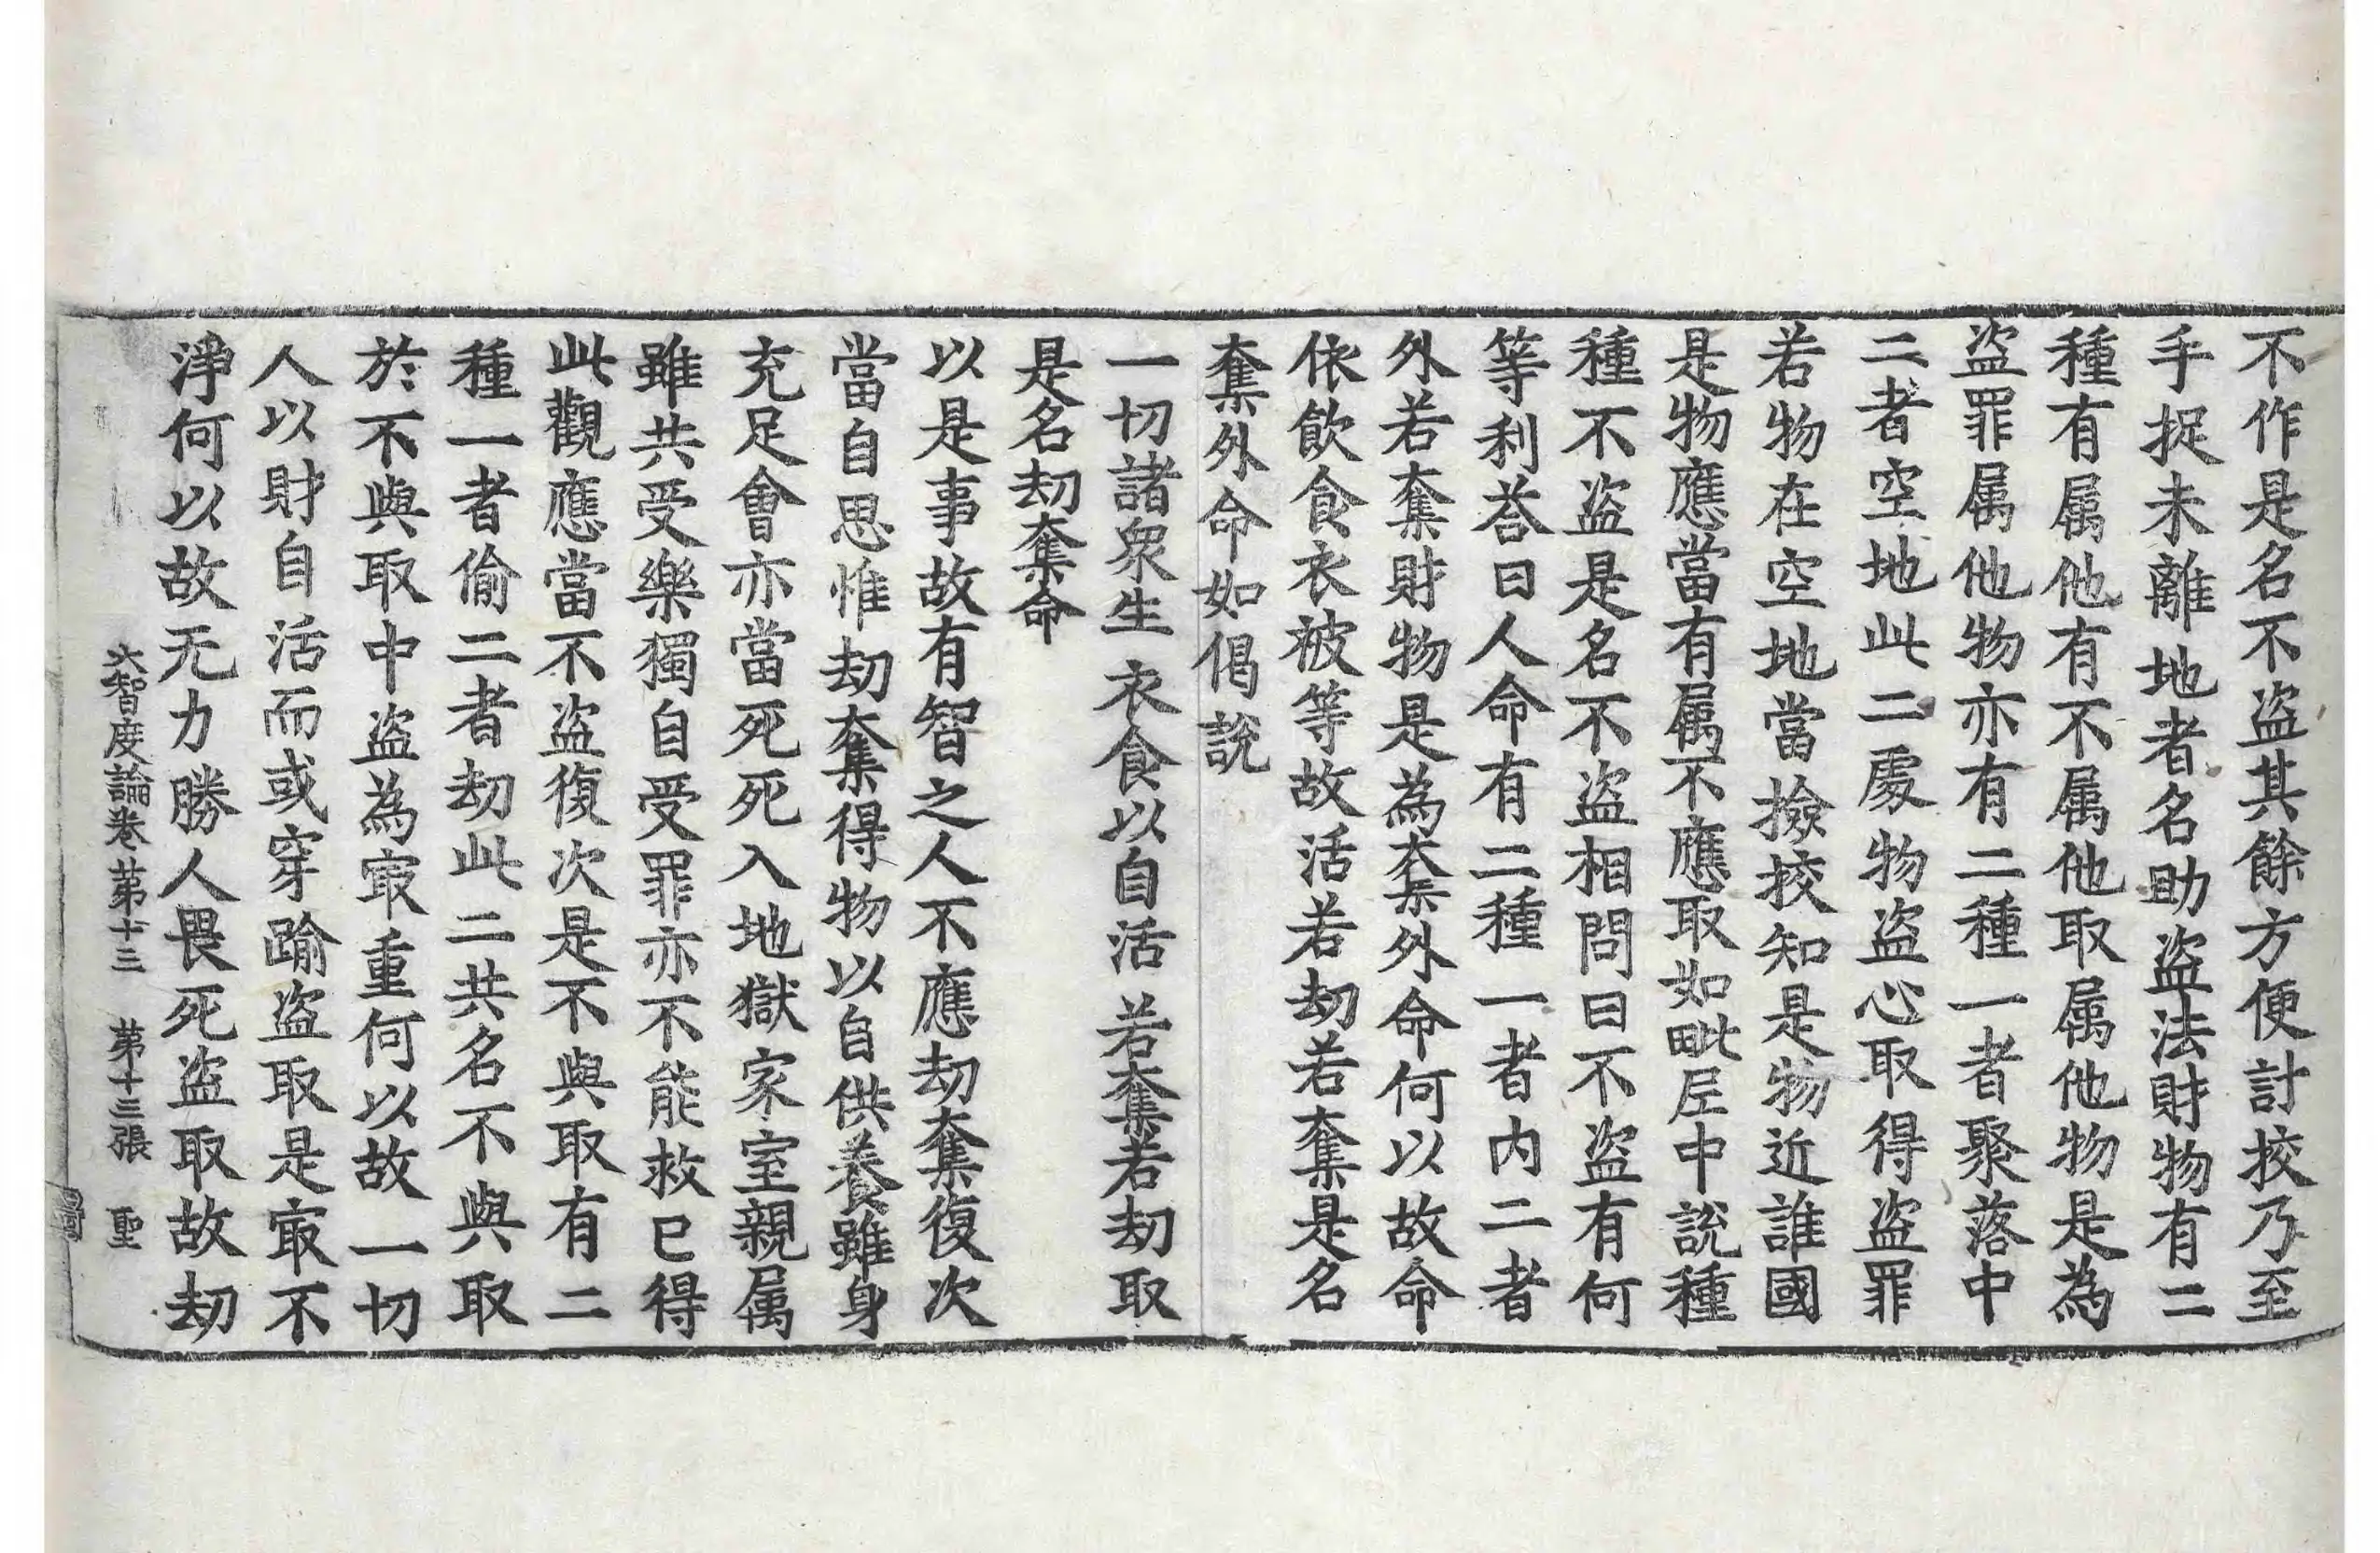 不作是名不盗其餘方便計挍乃至
手捉未離地者名助盗法財物有二
種有属他有不属他取属他物是為
盗罪属他物亦有二種一者聚落中
二者空地此二處物盗心取得盗罪
若物在空地當撿挍知是物近誰國
是物應當有属不應取如毗尼中說種
種不盗是名不盗相問曰不盗有何
等利荅曰人命有二種一者内二者
外若奪財物是為奪外命何以故命
依飲食衣被等故活若劫若奪是名
奪外命如偈說
一切諸衆生 衣食以自活 若奪若劫取
是名劫奪命
以是事故有智之人不應劫奪復次
當自思惟劫奪得物以自供養雖身
充足會亦當死死入地獄家室親属
雖共受樂獨自受罪亦不能救已得
此觀應當不盗復次是不與取有二
種一者偷二者劫此二共名不與取
於不與取中盗為㝡重何以故一切
人以財自活而或穿踰盗取是㝡不
淨何以故无力勝人畏死盗取故劫
大智度論卷第十三 第十三張 聖